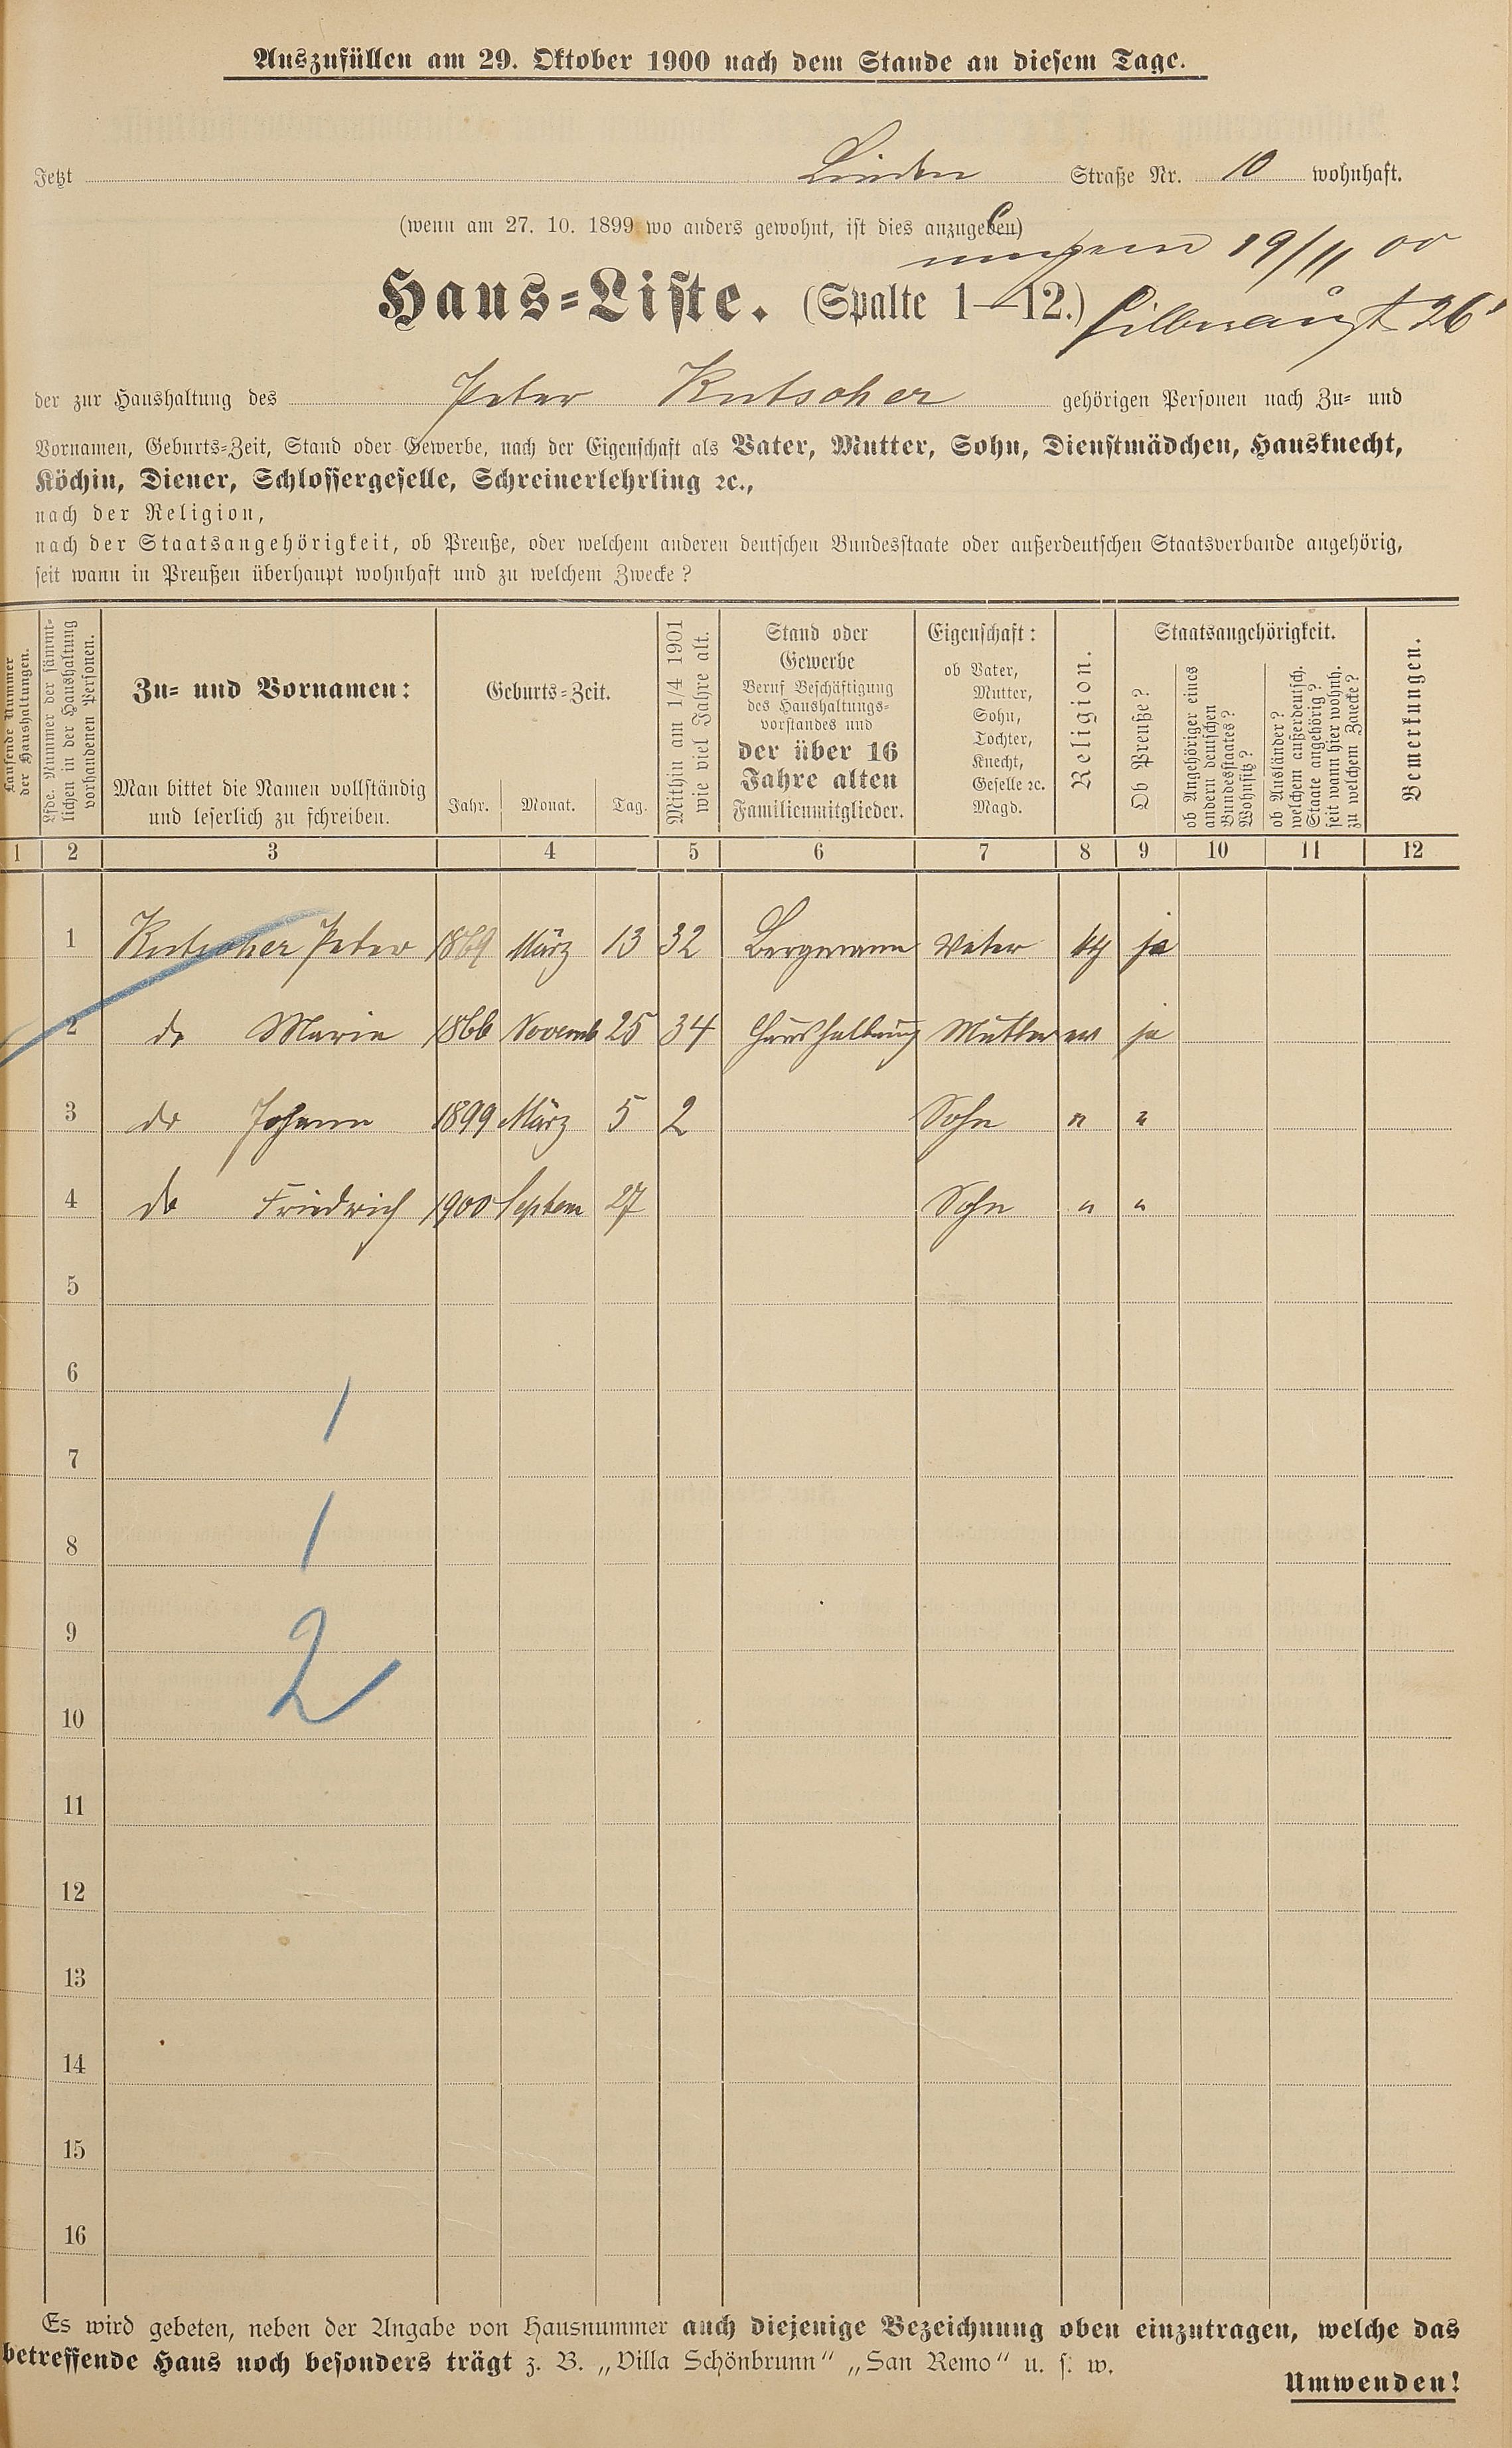 Auszufüllen am 29. Oktober 1900 nach dem Stande an diesem Tage.
Jetzt Linden Straße Nr. 10 wohnhaft.
(wenn am 27. 10. 1899 wo anders gewohnt, ist dies anzugeben)
19/11 00
Haus-Liste. (Spalte 1—12.)
26
der zur Haushaltung des Peter Kutscher gehörigen Personen nach Zu- und
Vornamen, Geburts-Zeit, Stand oder Gewerbe, nach der Eigenschaft als Vater, Mutter, Sohn, Dienstmädchen, Hausknecht,
Köchin, Diener, Schlossergeselle, Schreinerlehrling ꝛc.,
nach der Religion,
nach der Staatsangehörigkeit, ob Preuße, oder welchem anderen deutschen Bundesstaate oder außerdeutschen Staatsverbande angehörig,
seit wann in Preußen überhaupt wohnhaft und zu welchem Zwecke?
Laufende Nummer
der Haushaltungen.
Lfde. Nummer der sämmt-
lichen in der Haushaltung
vorhandenen Personen.
Zu- und Vornamen:
Man bittet die Namen vollständig
und leserlich zu schreiben.
Geburts-Zeit.
Jahr. Monat. Tag.
Mithin am 1/4 1901
wie viel Jahre alt.
Stand oder
Gewerbe
Beruf Beschäftigung
des Haushaltungs-
vorstandes und
der über 16
Jahre alten
Familienmitglieder.
Eigenschaft:
ob Vater,
Mutter,
Sohn,
Tochter,
Knecht,
Geselle ꝛc.
Magd.
Religion.
Staatsangehörigkeit.
Ob Preuße?
ob Angehöriger eines
andern deutschen
Bundesstaates?
Wohnsitz?
ob Ausländer?
welchem außerdeutsch.
Staate angehörig?
seit wann hier wohnh.
zu welchem Zwecke?
Bemerkungen.
1 2 3 4 5 6 7 8 9 10 11 12
1 Kutscher Peter 1869 März 13 32 Bergmann Vater ja
2 do Maria 1866 Novemb 25 34 Haushaltung Mutter ja
3 do Johann 1899 März 5 2 Sohn " "
4 do Friedrich 1900 Septem 27 Sohn " "
5
6
1
7
1
8
9
2
10
11
12
13
14
15
16
Es wird gebeten, neben der Angabe von Hausnummer auch diejenige Bezeichnung oben einzutragen, welche das
betreffende Haus noch besonders trägt z. B. „Villa Schönbrunn“ „San Remo“ u. s. w.
Umwenden!